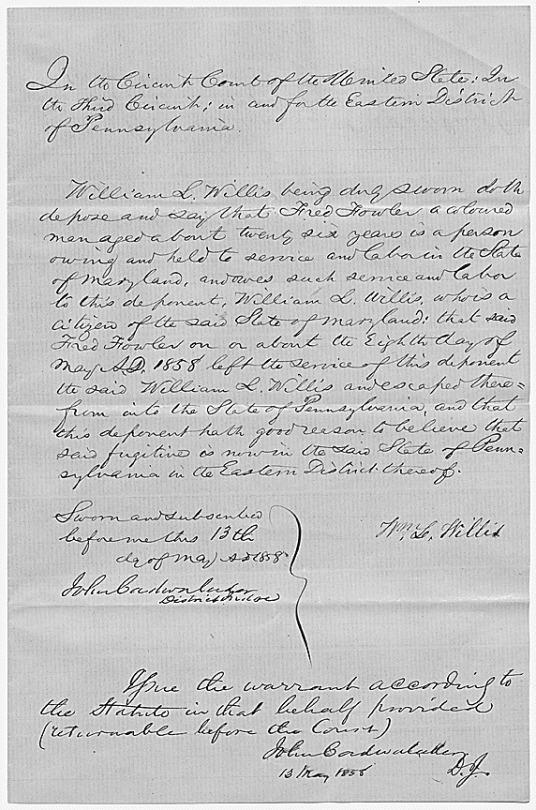 In the Circuit Court of the United State: In
the Third Circuit; in and for the Eastern District
of Pennsylvania.
William L. Willis being duly sworn doth
depose and say that Fred Fowler a coloured
man aged about twenty six years is a person
owing and held to service and labor in the State
of Maryland, and owes such service and labor
to this deponent, William L. Willis, who is a
citizen of the said State of Maryland: that said
Fred Fowler on or about the Eighth day of
May A.D. 1858 left the service of this deponent
the said William L. Willis and escaped there=
from into the State of Pennsylvania, and that
this deponent hath good reason to believe that
said fugitive is now in the said State of Penn=
sylvania in the Eastern District thereof.
Sworn and subscribed
before me this 13th
day of May AD 1858
John Cadwalader
District Judge
Wm. L. Willis
Issue the warrant according to
the Statute in that behalf provided
(returnable before the Court)
John Cadwalader
13 May 1858 D.J.